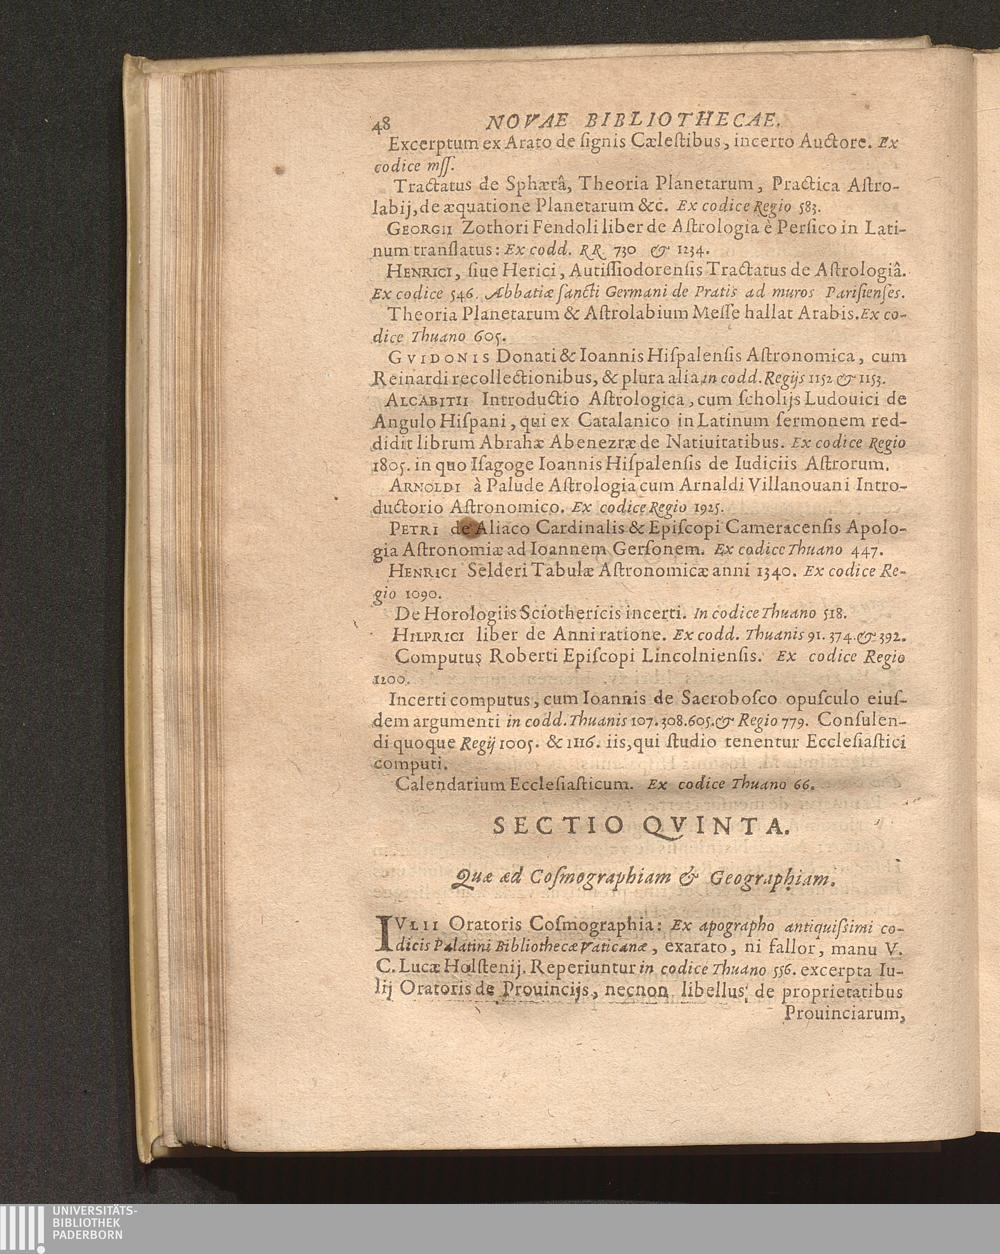 48 NOVAE BIBLIOTHECAE.
Excerptum ex Arato de ſignis Cæleſtibus, incerto Auctore. Ex
codice mſſ.
Tractatus de Sphærâ, Theoria Planetarum, Practica Aſtro-
labij, de æquatione Planetarum &c. Ex codice Regio 583.
GEORGII Zothori Fendoli liber de Aſtrologia è Perſico in Lati-
num tranſlatus: Ex codd. RR. 730 & 1234.
HENRICI, ſiue Herici, Autiſſiodorenſis Tractatus de Aſtrologiâ.
Ex codice 546. Abbatiæ ſancti Germani de Pratis ad muros Pariſienſes.
Theoria Planetarum & Aſtrolabium Meſſe hallat Arabis. Ex co-
dice Thuano 605.
GVIDONIS Donati & Ioannis Hiſpalenſis Aſtronomica, cum
Reinardi recollectionibus, & plura alia in codd. Regijs 1152 & 1153.
ALCABITII Introductio Aſtrologica, cum ſcholijs Ludouici de
Angulo Hiſpani, qui ex Catalanico in Latinum ſermonem red-
didit librum Abrahæ Abenezræ de Natiuitatibus. Ex codice Regio
1805. in quo Iſagoge Ioannis Hiſpalenſis de Iudiciis Aſtrorum.
ARNOLDI à Palude Aſtrologia cum Arnaldi Villanouani Intro-
ductorio Aſtronomico. Ex codice Regio 1925.
PETRI de Aliaco Cardinalis & Epiſcopi Cameracenſis Apolo-
gia Aſtronomiæ ad Ioannem Gerſonem. Ex codice Thuano 447.
HENRICI Selderi Tabulæ Aſtronomicæ anni 1340. Ex codice Re-
gio 1090.
De Horologiis Sciothericis incerti. In codice Thuano 518.
HILPRICI liber de Anni ratione. Ex codd. Thuanis 91. 374. & 392.
Computus Roberti Epiſcopi Lincolnienſis. Ex codice Regio
1200.
Incerti computus, cum Ioannis de Sacroboſco opuſculo eiuſ-
dem argumenti in codd. Thuanis 107. 308. 605. & Regio 779. Conſulen-
di quoque Regij 1005. & 1116. iis, qui ſtudio tenentur Eccleſiaſtici
computi.
Calendarium Eccleſiaſticum. Ex codice Thuano 66.
SECTIO QVINTA.
Quæ æd Coſmographiam & Geographiam.
IVLII Oratoris Coſmographia: Ex apographo antiquiſsimi co-
dicis Palatini Bibliothecæ Vaticanæ, exarato, ni fallor, manu V.
C. Lucæ Holſtenij. Reperiuntur in codice Thuano 556. excerpta Iu-
lij Oratoris de Prouincijs, necnon libellus de proprietatibus
Prouinciarum,
UNIVERSITÄTS-
BIBLIOTHEK
PADERBORN